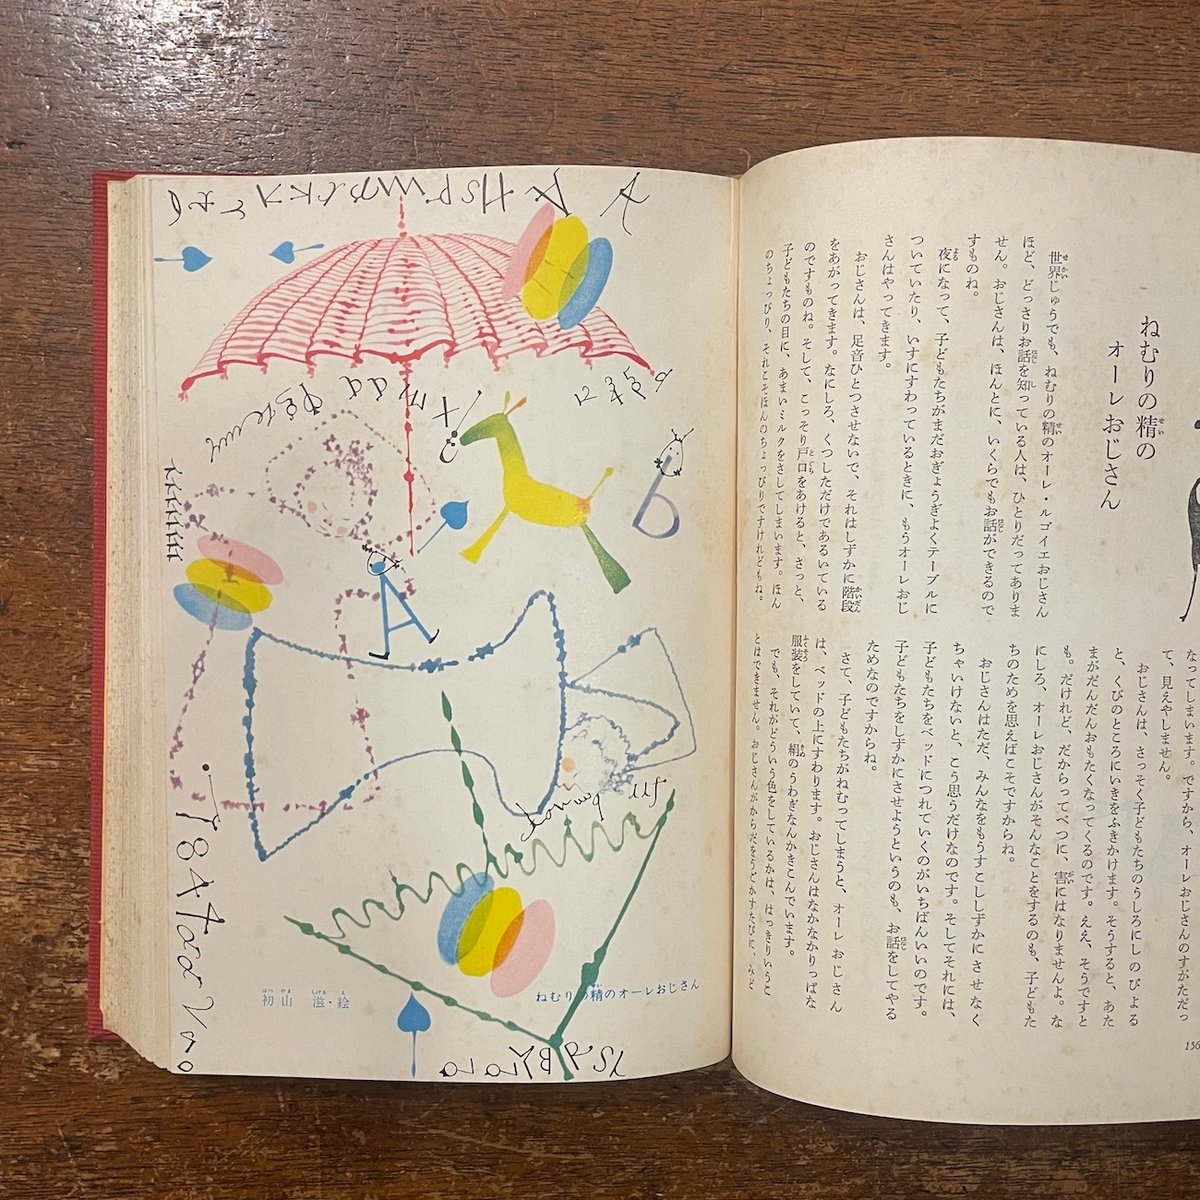 ねむりの精の
オーレおじさん
世界じゅうでも、ねむりの精のオーレ・ルゴイエおじさん
ほど、どっさりお話を知っている人は、ひとりだってありま
せん。おじさんは、ほんとに、いくらでもお話ができるので
すものね。
夜になって、子どもたちがまだおぎょうぎよくテーブルに
ついていたり、いすにすわっているときに、もうオーレおじ
さんはやってきます。
おじさんは、足音ひとつさせないで、それはしずかに階段
をあがってきます。なにしろ、くつしただけであるいている
のですものね。そして、こっそり戸口をあけると、さっと、
子どもたちの目に、あまいミルクをさしてしまいます。ほん
のちょっぴり、それこそほんのちょっぴりですけれどもね。
なってしまいます。ですから、オーレおじさんのすがただっ
て、見えやしません。
おじさんは、さっそく子どもたちのうしろにしのびよる
と、くびのところにいきをふきかけます。そうすると、あた
まがだんだんおもたくなってくるのです。ええ、そうですと
も。だけれど、だからってべつに、害にはなりませんよ。な
にしろ、オーレおじさんがそんなことをするのも、子どもた
ちのためを思えばこそですからね。
おじさんはただ、みんなをもうすこししずかにさせなく
ちゃいけないと、こう思うだけなのです。そしてそれには、
子どもたちをベッドにつれていくのがいちばんいいのです。
子どもたちをしずかにさせようというのも、お話をしてやる
ためなのですからね。
さて、子どもたちがねむってしまうと、オーレおじさん
は、ベッドの上にすわります。おじさんはなかなかりっぱな
服装をしていて、絹のうわぎなんかきこんでいます。
でも、それがどういう色をしているかは、はっきりいうこ
とはできません。おじさんがからだをうごかすたびに、みど
156
初山 滋・絵
ねむりの精のオーレおじさん